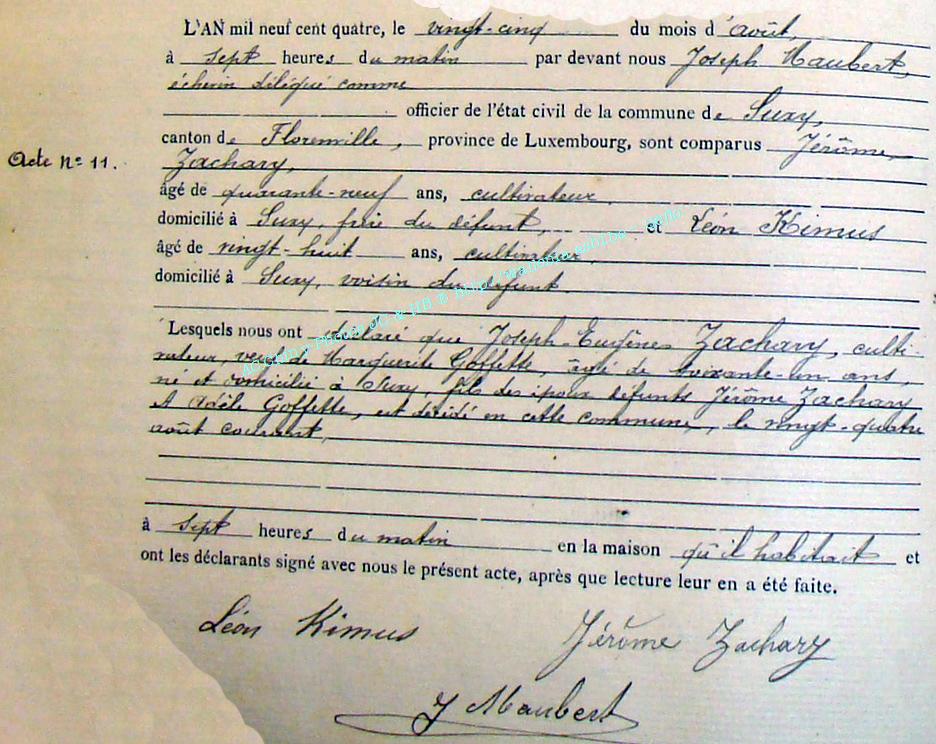 L'AN mil neuf cent quatre, le vingt-cinq du mois d'août,
à sept heures du matin par devant nous Joseph Maubert,
échevin délégué comme
officier de l'état civil de la commune de Suxy,
canton de Florenville, province de Luxembourg, sont comparus Jérôme
Acte nº 11.
Zachary,
âgé de quarante-neuf ans, cultivateur,
domicilié à Suxy, frère du défunt, et Léon Kimus
âgé de vingt-huit ans, cultivateur,
domicilié à Suxy, voisin du défunt.
Lesquels nous ont déclaré que Joseph-Eugène Zachary, culti-
vateur, veuf de Marguerite Goffette, âgé de soixante-un ans,
né et domicilié à Suxy, fils des époux défunts Jérôme Zachary
et Adèle Goffette, est décédé en cette commune, le vingt-quatre
août courant,
à sept heures du matin en la maison qu'il habitait et
ont les déclarants signé avec nous le présent acte, après que lecture leur en a été faite.
Léon Kimus Jérôme Zachary
J Maubert